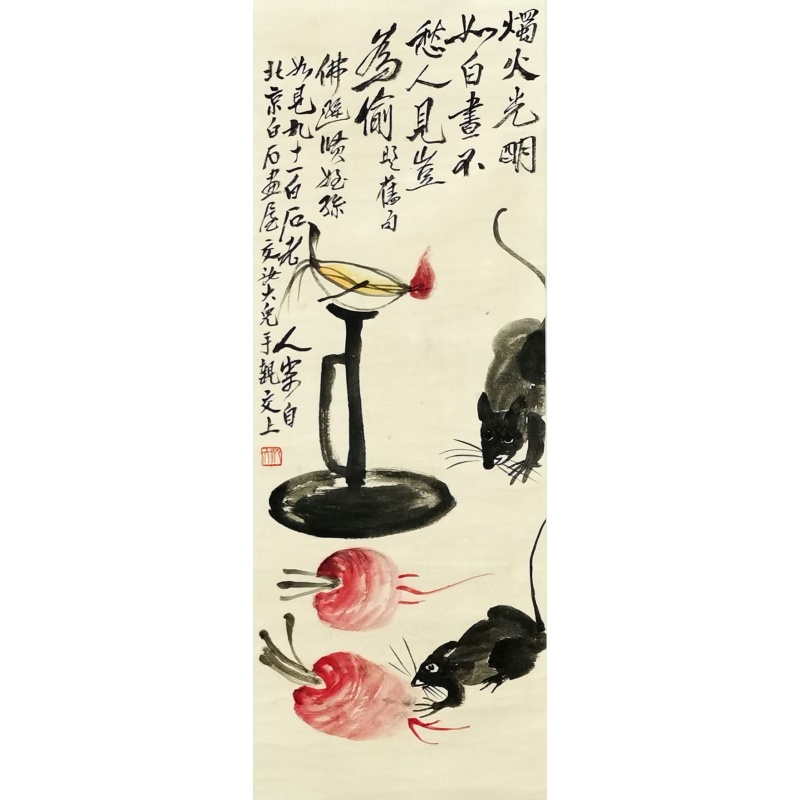 燭火光明
如白晝不
愁人見豈
為偷 是舊句
佛賢姪
如見九十一白石老人寄自
北京白石畫屋交汝大兒手親交上